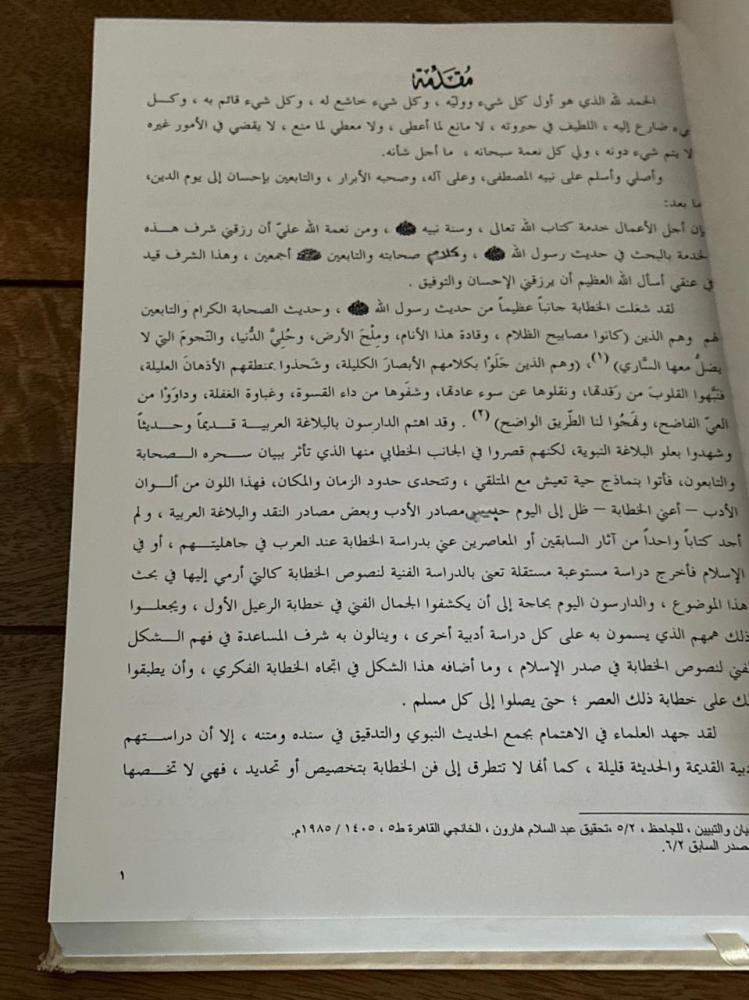 مُقَدِّمَة
الحمد لله الذي هو أول كل شيء ووليّه ، وكل شيء خاشع له ، وكل شيء قائم به ، وكـــل
ـيء ضارع إليه ، اللطيف في جبروته ، لا مانع لما أعطى ، ولا معطي لما منع ، لا يقضي في الأمور غيره
لا يتم شيء دونه ، ولي كل نعمة سبحانه ، ما أجل شأنه.
وأصلي وأسلم على نبيه المصطفى، وعلى آله، وصحبه الأبرار ، والتابعين بإحسان إلى يوم الدين،
ما بعد:
إن أجل الأعمال خدمة كتاب الله تعالى ، وسنة نبيه ﷺ ، ومن نعمة الله عليّ أن رزقني شرف هـــذه
لخدمة بالبحث في حديث رسول الله ﷺ ، وكلام صحابته والتابعين أجمعين ، وهذا الشرف قيد
في عنقي أسأل الله العظيم أن يرزقني الإحسان والتوفيق .
لقد شغلت الخطابة جانباً عظيماً من حديث رسول الله ﷺ ، وحديث الصحابة الكرام والتابعين
لهم وهم الذين (كانوا مصابيح الظلام ، وقادة هذا الأنام، ومِلْحَ الأرض، وحُلِيَّ الدُّنيا، والنّجومَ التي لا
يضلُّ معها السَّاري) (١)، (وهم الذين جَلَوْا بكلامهم الأبصارَ الكليلة، وشَحذوا بمنطقهم الأذهانَ العليلة،
فنبَّهوا القلوبَ من رَقدتها، ونقلوها عن سوء عادتها، وشفَوها من داء القسوة، وغباوة الغفلة، وداوَوْا من
العيّ الفاضح، ونَهَجُوا لنا الطّريق الواضح) (٢) . وقد اهتم الدارسون بالبلاغة العربيـــة قـديمـاً وحـديثـاً
وشهدوا بعلو البلاغة النبوية، لكنهم قصروا في الجانب الخطابي منها الذي تأثر ببيان ســـحره الـــصحابة
والتابعون، فأتوا بنماذج حية تعيش مع المتلقي ، وتتحدى حدود الزمان والمكان، فهذا اللون من ألـــوان
الأدب – أعني الخطابة – ظل إلى اليوم حبيس مصادر الأدب وبعض مصادر النقد والبلاغة العربية ، ولم
أجد كتاباً واحداً من آثار السابقين أو المعاصرين عني بدراسة الخطابة عند العرب في جاهليتـــهم ، أو في
الإسلام فأخرج دراسة مستوعبة مستقلة تعنى بالدراسة الفنية لنصوص الخطابة كالتي أرمي إليها في بحث
هذا الموضوع ، والدارسون اليوم بحاجة إلى أن يكشفوا الجمال الفني في خطابة الرعيل الأول ، ويجعلـــوا
ذلك همهم الذي يسمون به على كل دراسة أدبية أخرى ، وينالون به شرف المساعدة في فهم الـــشكل
لفني لنصوص الخطابة في صدر الإسلام ، وما أضافه هذا الشكل في اتجاه الخطابة الفكري ، وأن يطبقوا
لك على خطابة ذلك العصر ؛ حتى يصلوا إلى كل مسلم .
لقد جهد العلماء في الاهتمام بجمع الحديث النبوي والتدقيق في سنده ومتنه ، إلا أن دراســـتهم
دبية القديمة والحديثة قليلة ، كما أنها لا تتطرق إلى فن الخطابة بتخصيص أو تحديد ، فهي لا تخـــصها
يان والتبيين ، للجاحظ ، ٥/٢ ،تحقيق عبد السلام هارون ، الخانجي القاهرة ط٥ ، ١٤٠٥ / ١٩٨٥م.
صدر السابق ٦/٢.
١